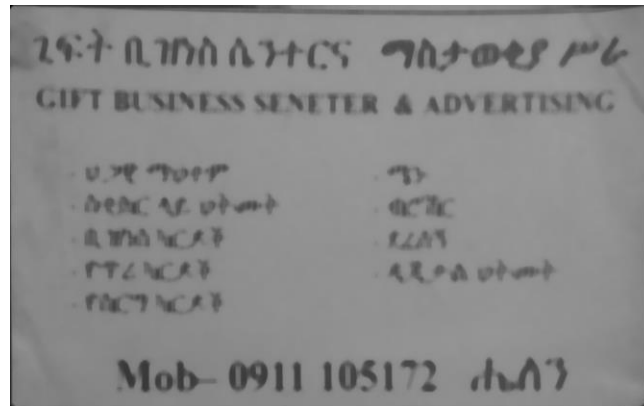 ጊፍት ቢዝነስ ሴንተርና ማስታወቂያ ሥራ
GIFT BUSINESS SENETER & ADVERTISING
ህጋዊ ማህተም
ስቲከር ላይ ህትመት
ቢዝነስ ካርዶች
የጥሪ ካርዶች
የሰርግ ካርዶች
ብሮሸር
ደረሰኝ
ዲጂታል ህትመት
Mob– 0911 105172 ሐሰን